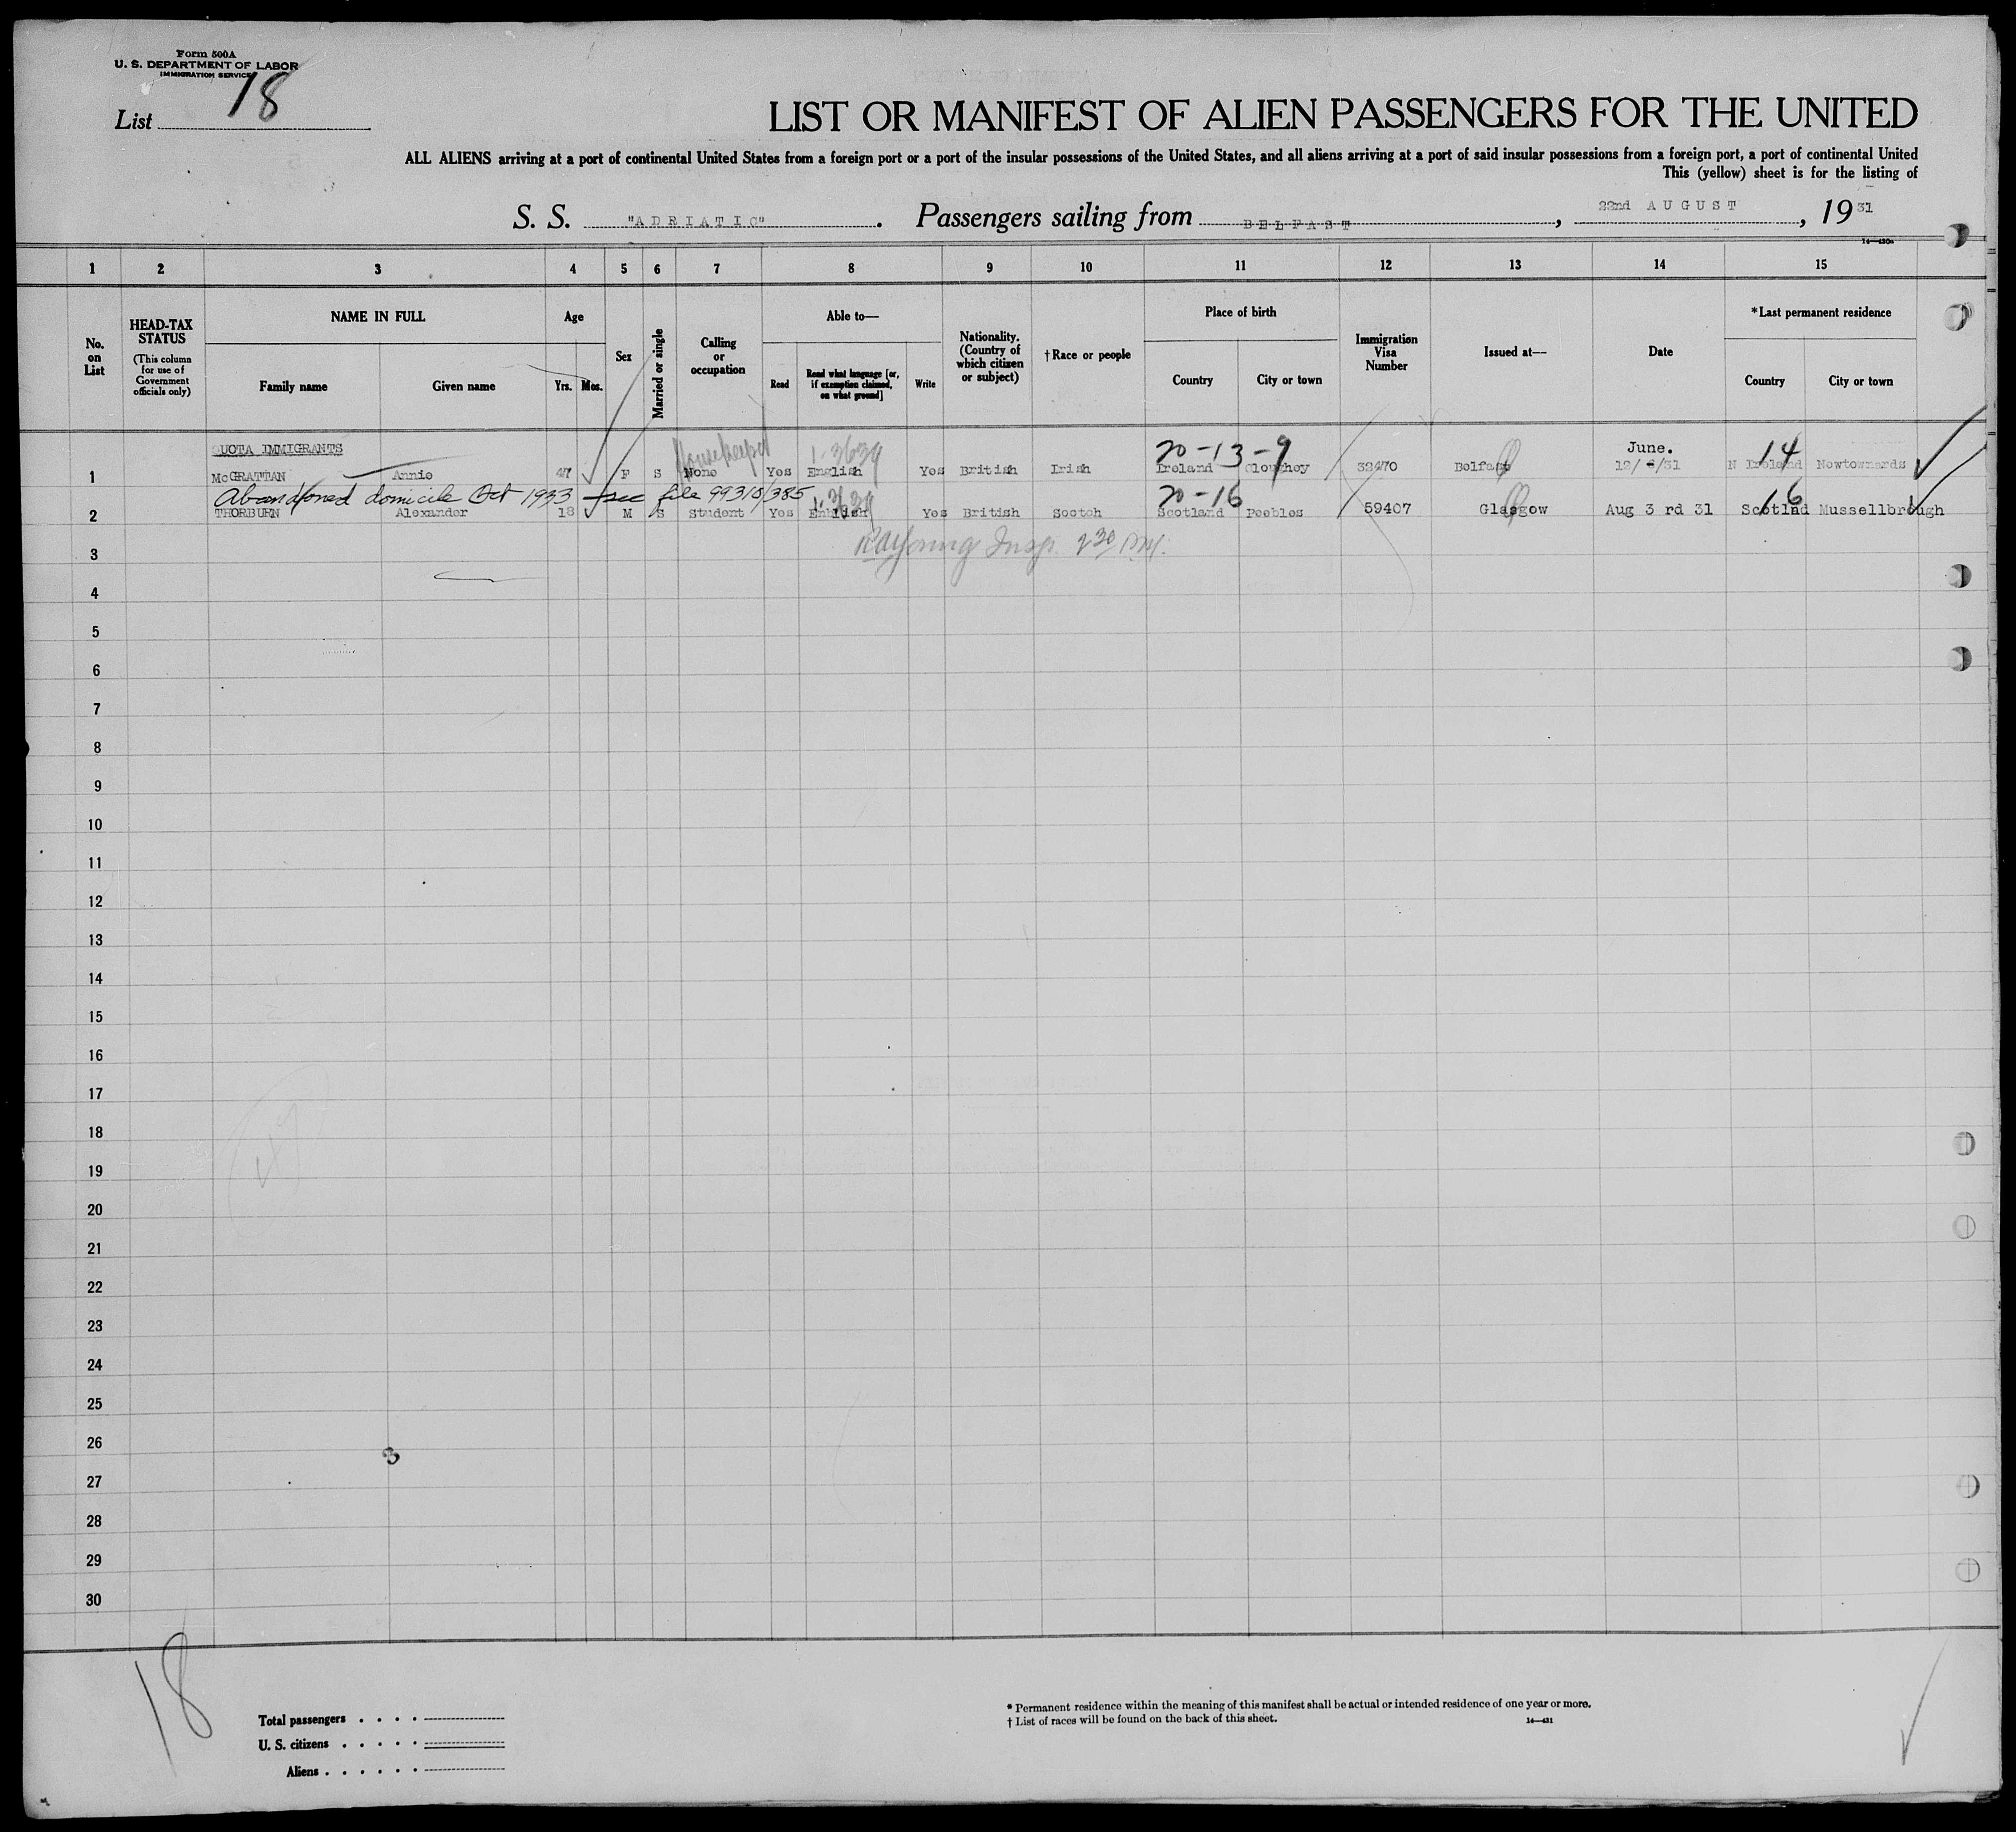 Form 500A
U. S. DEPARTMENT OF LABOR
IMMIGRATION SERVICE
List 18
LIST OR MANIFEST OF ALIEN PASSENGERS FOR THE UNITED
ALL ALIENS arriving at a port of continental United States from a foreign port or a port of the insular possessions of the United States, and all aliens arriving at a port of said insular possessions from a foreign port, a port of continental United
This (yellow) sheet is for the listing of
S. S. "ADRIATIC". Passengers sailing from BELFAST, 22nd AUGUST, 1931
1 2 3 4 5 6 7 8 9 10 11 12 13 14 15
No. on List
HEAD-TAX STATUS
(This column for use of Government officials only)
NAME IN FULL
Family name Given name
Age
Yrs. Mos.
Sex
Married or single
Calling or occupation
Able to—
Read
Read what language [or, if exemption claimed, on what ground]
Write
Nationality. (Country of which citizen or subject)
† Race or people
Place of birth
Country City or town
Immigration Visa Number
Issued at—
Date
* Last permanent residence
Country City or town
QUOTA IMMIGRANTS
Housekeeper 20-13-9 June. 14
1 McGRATTAN Annie 47 F S None Yes English Yes British Irish Ireland Cloughey 38470 Belfast 12/ /31 N Ireland Newtownards
Abandoned domicile Oct 1933 - see file 99315/385 20-16 16
2 THORBURN Alexander 18 M S Student Yes English Yes British Scotch Scotland Peebles 59407 Glasgow Aug 3 rd 31 Scotlnd Mussellbrough
3 Insp. 2 30 PM.
4
5
6
7
8
9
10
11
12
13
14
15
16
17
18
19
20
21
22
23
24
25
26
3
27
28
29
30
18
Total passengers . . . .
U. S. citizens . . . . .
Aliens . . . . . .
* Permanent residence within the meaning of this manifest shall be actual or intended residence of one year or more.
† List of races will be found on the back of this sheet.
14—431